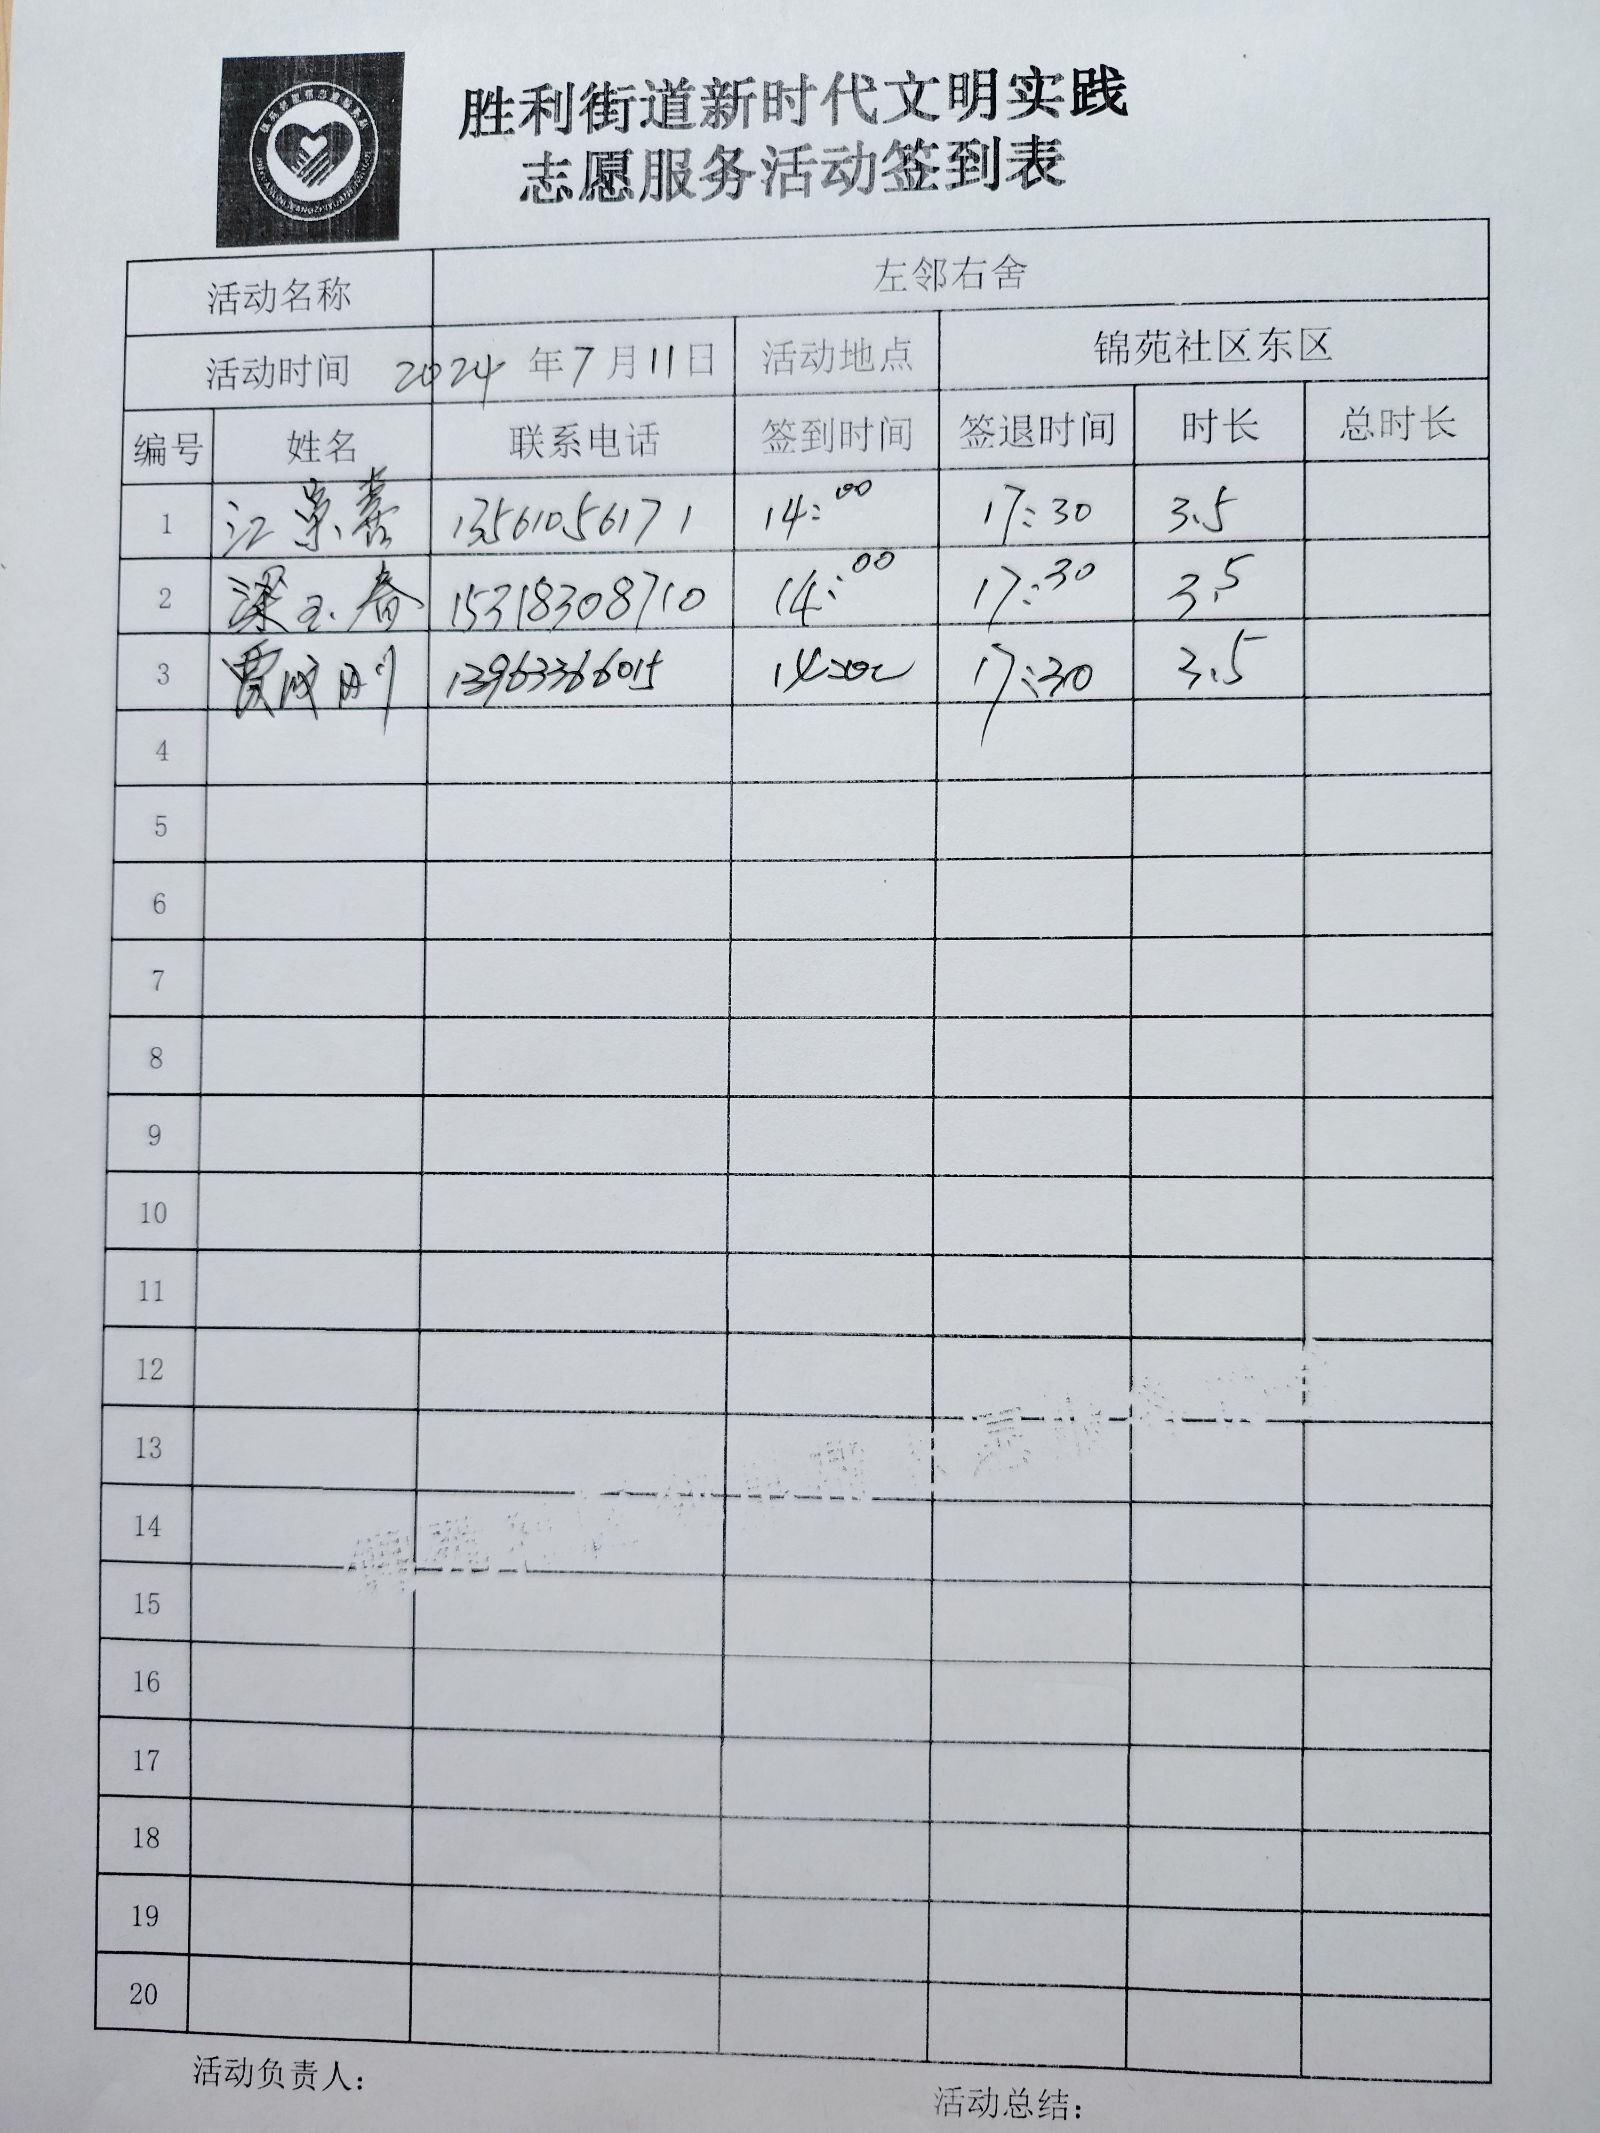 胜利街道新时代文明实践
志愿服务活动签到表
活动名称 左邻右舍
活动时间 2024年7月11日 活动地点 锦苑社区东区
编号 姓名 联系电话 签到时间 签退时间 时长 总时长
1 江景喜 13561056171 14:00 17:30 3.5
2 梁玉春 15318308710 14:00 17:30 3.5
3 贾 刚 13963366015 14:00 17:30 3.5
4
5
6
7
8
9
10
11
12
13
14
15
16
17
18
19
20
活动负责人：
活动总结：